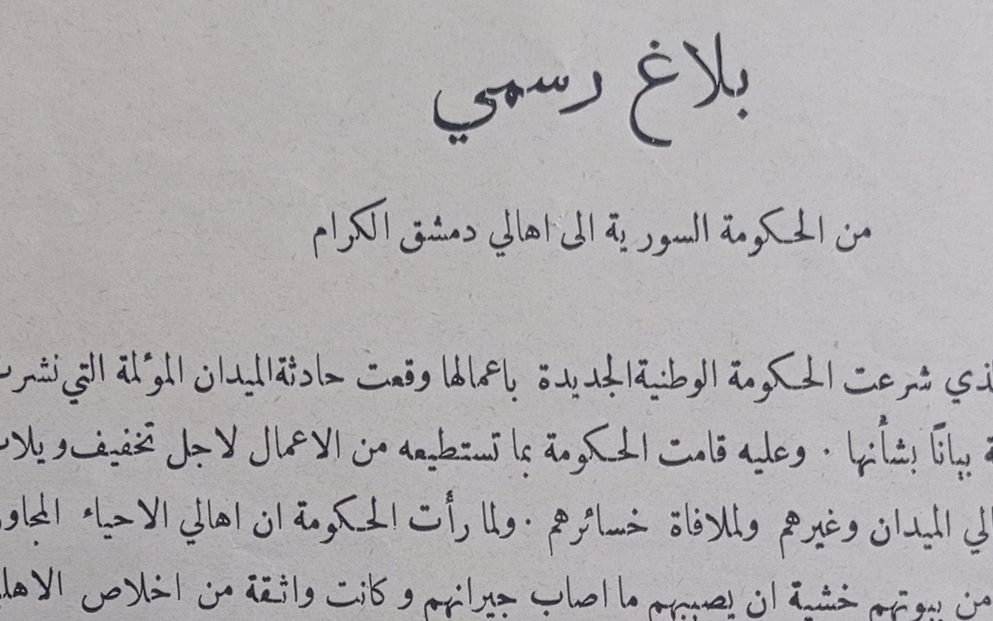 بلاغ رسمي
من الحكومة السورية الى اهالي دمشق الكرام
شرعت الحكومة الوطنية الجديدة باعمالها وقعت حادثة الميدان المؤلمة التي
بيانًا بشأنها . وعليه قامت الحكومة بما تستطيعه من الاعمال لاجل تخفيف
الميدان وغيرهم ولملافاة خسائرهم . ولما رأت الحكومة ان اهالي الاحياء
من بيوتهم خشية ان يصيبهم ما اصاب جيرانهم وكانت واثقة من اخلاص